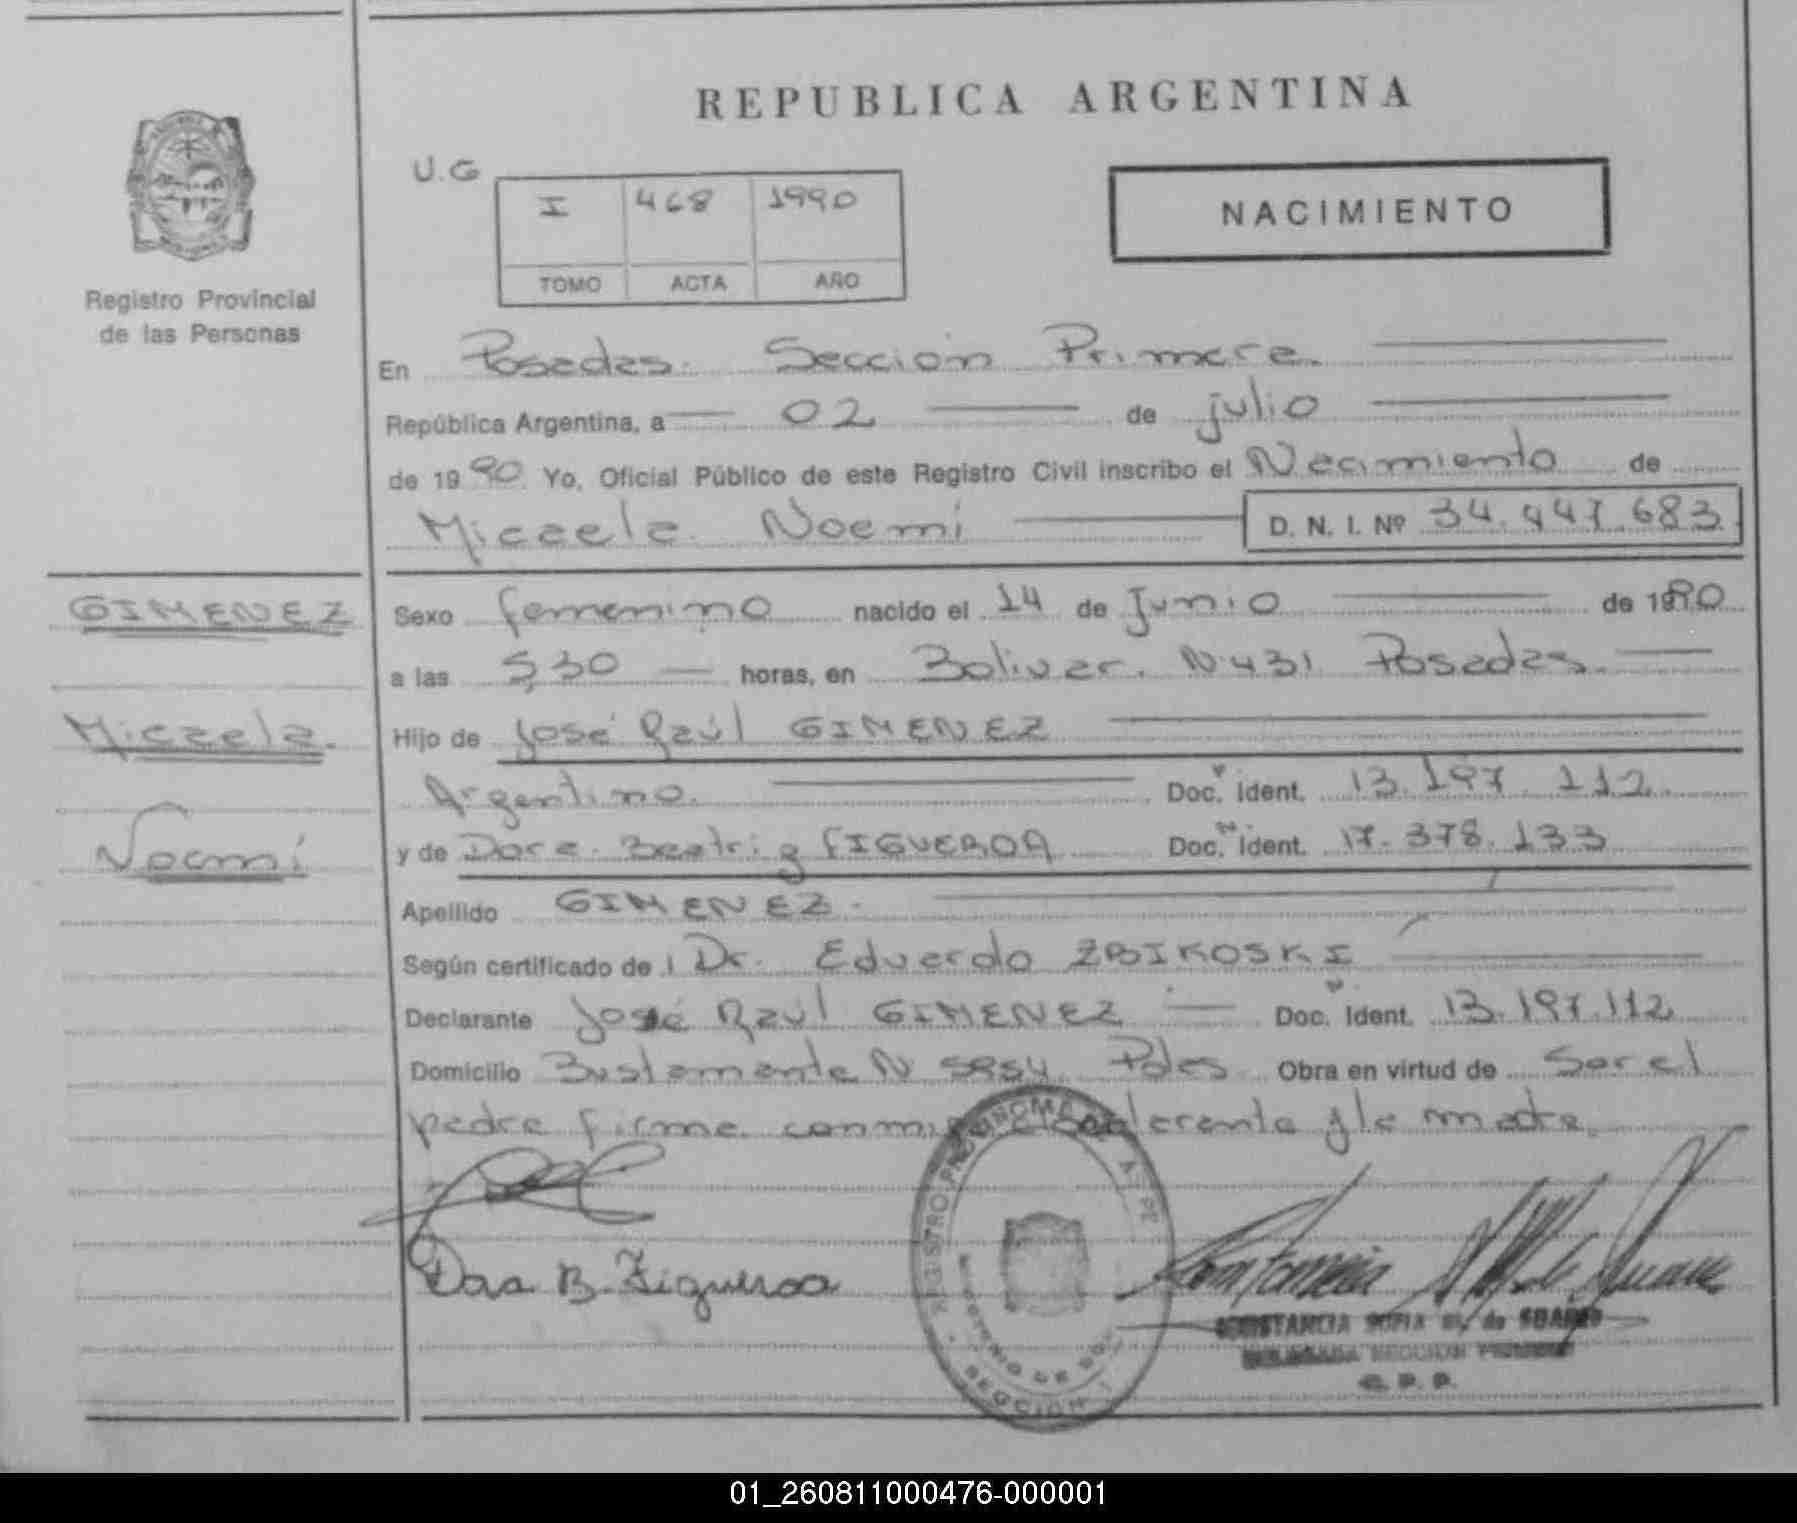 REPUBLICA ARGENTINA
U.G
I 468 1990
TOMO ACTA AÑO
NACIMIENTO
Registro Provincial
de las Personas
En Posadas. Sección Primera.
República Argentina, a 02 de julio
de 1990 Yo, Oficial Público de este Registro Civil inscribo el Nacimiento de
Micaela Noemí D. N. I. Nº 34.447.683
GIMENEZ
Micaela
Noemí
Sexo femenino nacido el 14 de Junio de 1990
a las 5,30 horas, en Bolivar. N 431 Posadas
Hijo de José Raúl GIMENEZ
Argentino. Doc. ident. 13.197.112
y de Dora Beatriz FIGUEROA Doc. ident. 17.378.133
Apellido GIMENEZ.
Según certificado de Dr. Eduardo ZBIKOSKI
Declarante José Raúl GIMENEZ Doc. Ident. 13.197.112
Domicilio Bustamante N Pdas Obra en virtud de Ser el
padre firma conmigo el declarante y la madre.
Dora B. Figueroa
REGISTRO
MINISTERIO DE
SECCION 1
SOFIA de SUAREZ
SECCION PRIMERA
01_260811000476-000001